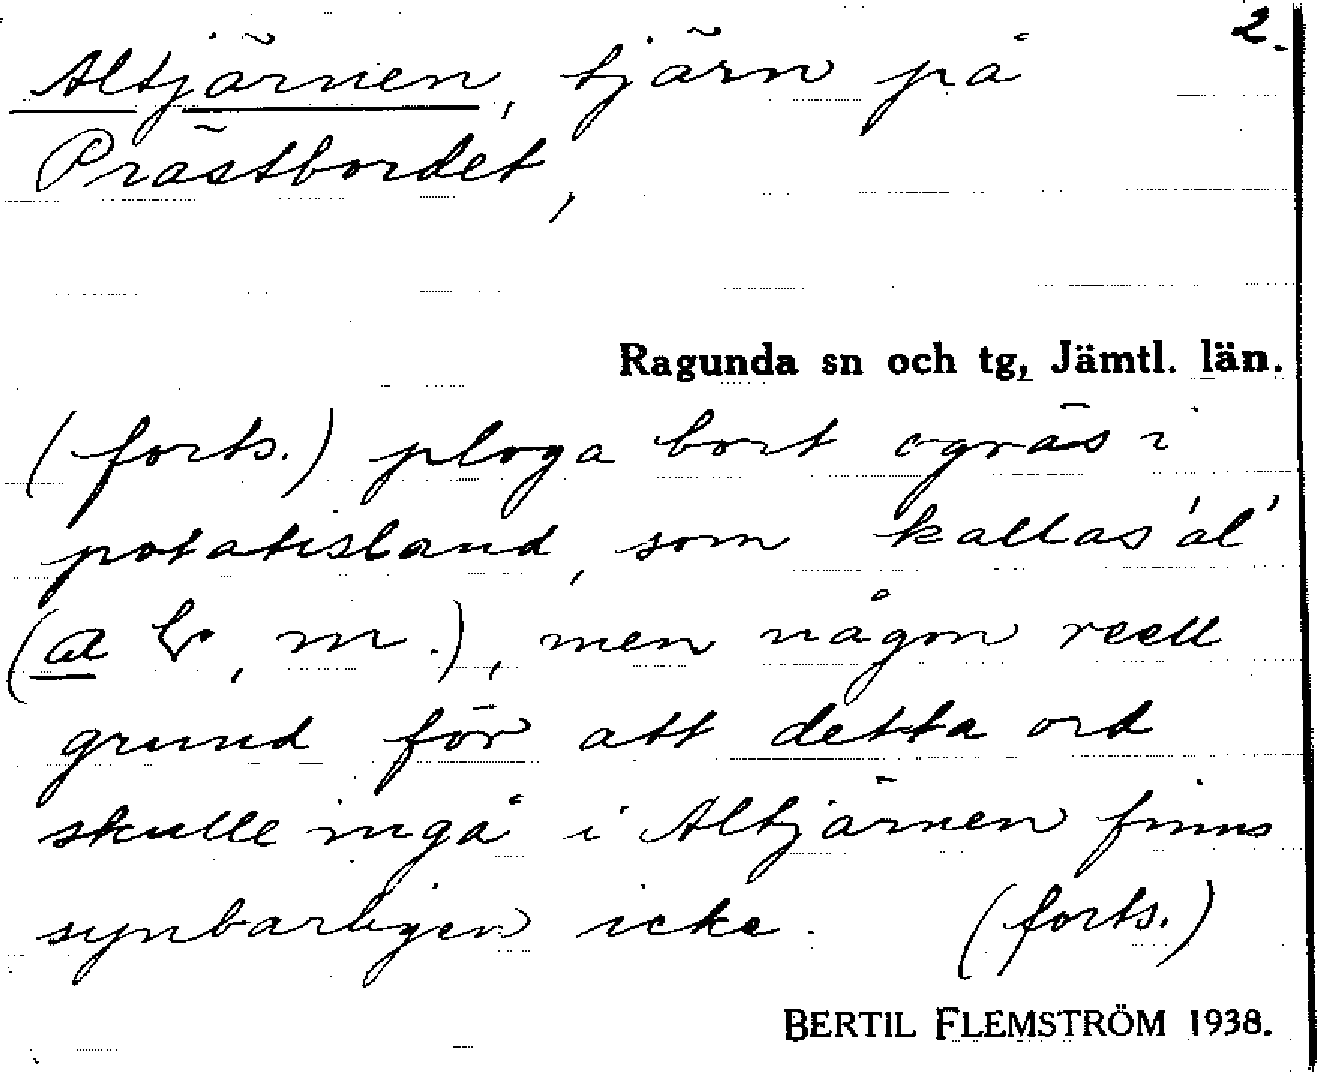 2.
Altjärnen, tjärn på
Prästbordet,
Ragunda sn och tg, Jämtl. län.
(forts.) ploga bort ogräs i
potatisland, som kallas 'al'
(a, m.), men någon reell
grund för att detta ord
skulle ingå i Altjärnen finns
synbarligen icke. (forts.)
BERTIL FLEMSTRÖM 1938.